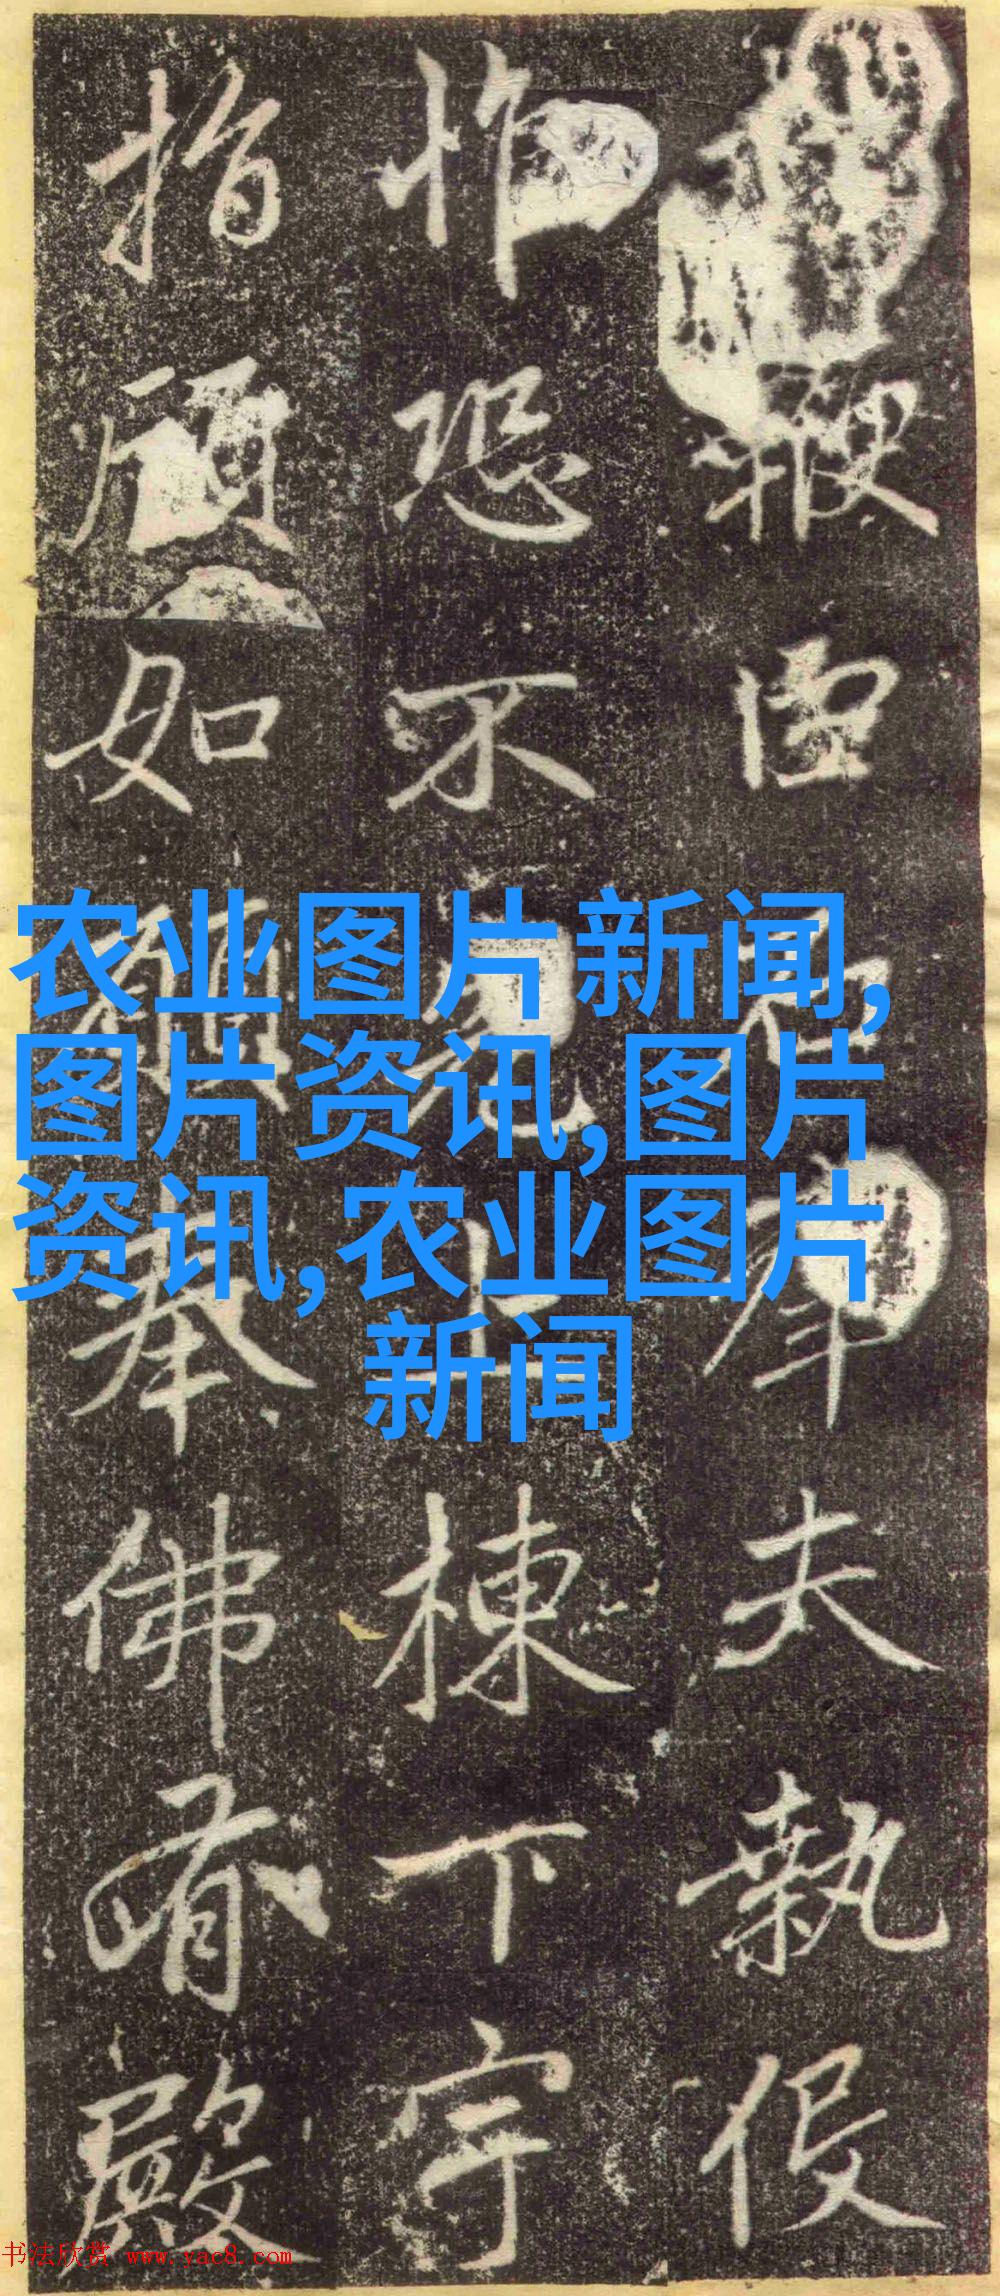 农业图片新闻,
图片资讯,图片
资讯,农业图片
新闻
鞭夫執役
恐不上棟下宇
指顧如願奉佛有殿
书法欣赏 www.yac8.com